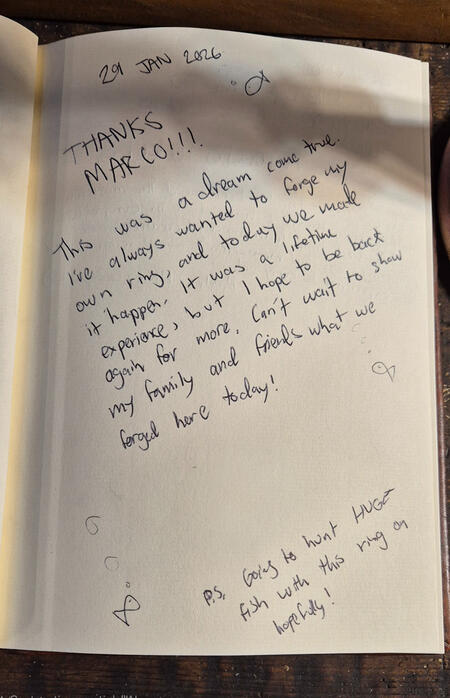 29 JAN 2026
THANKS
MARCO!!!
This was a dream come true.
I've always wanted to forge my
own ring, and today we made
it happen. It was a lifetime
experience, but I hope to be back
again for more. Can't wait to show
my family and friends what we
forged here today!
P.S. Going to hunt HUGE
fish with this ring on
hopefully!